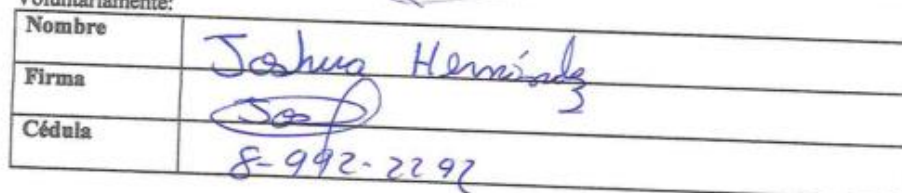 Voluntariamente:
Nombre Joshua Hernández
Firma Jos
Cédula 8-992-2292